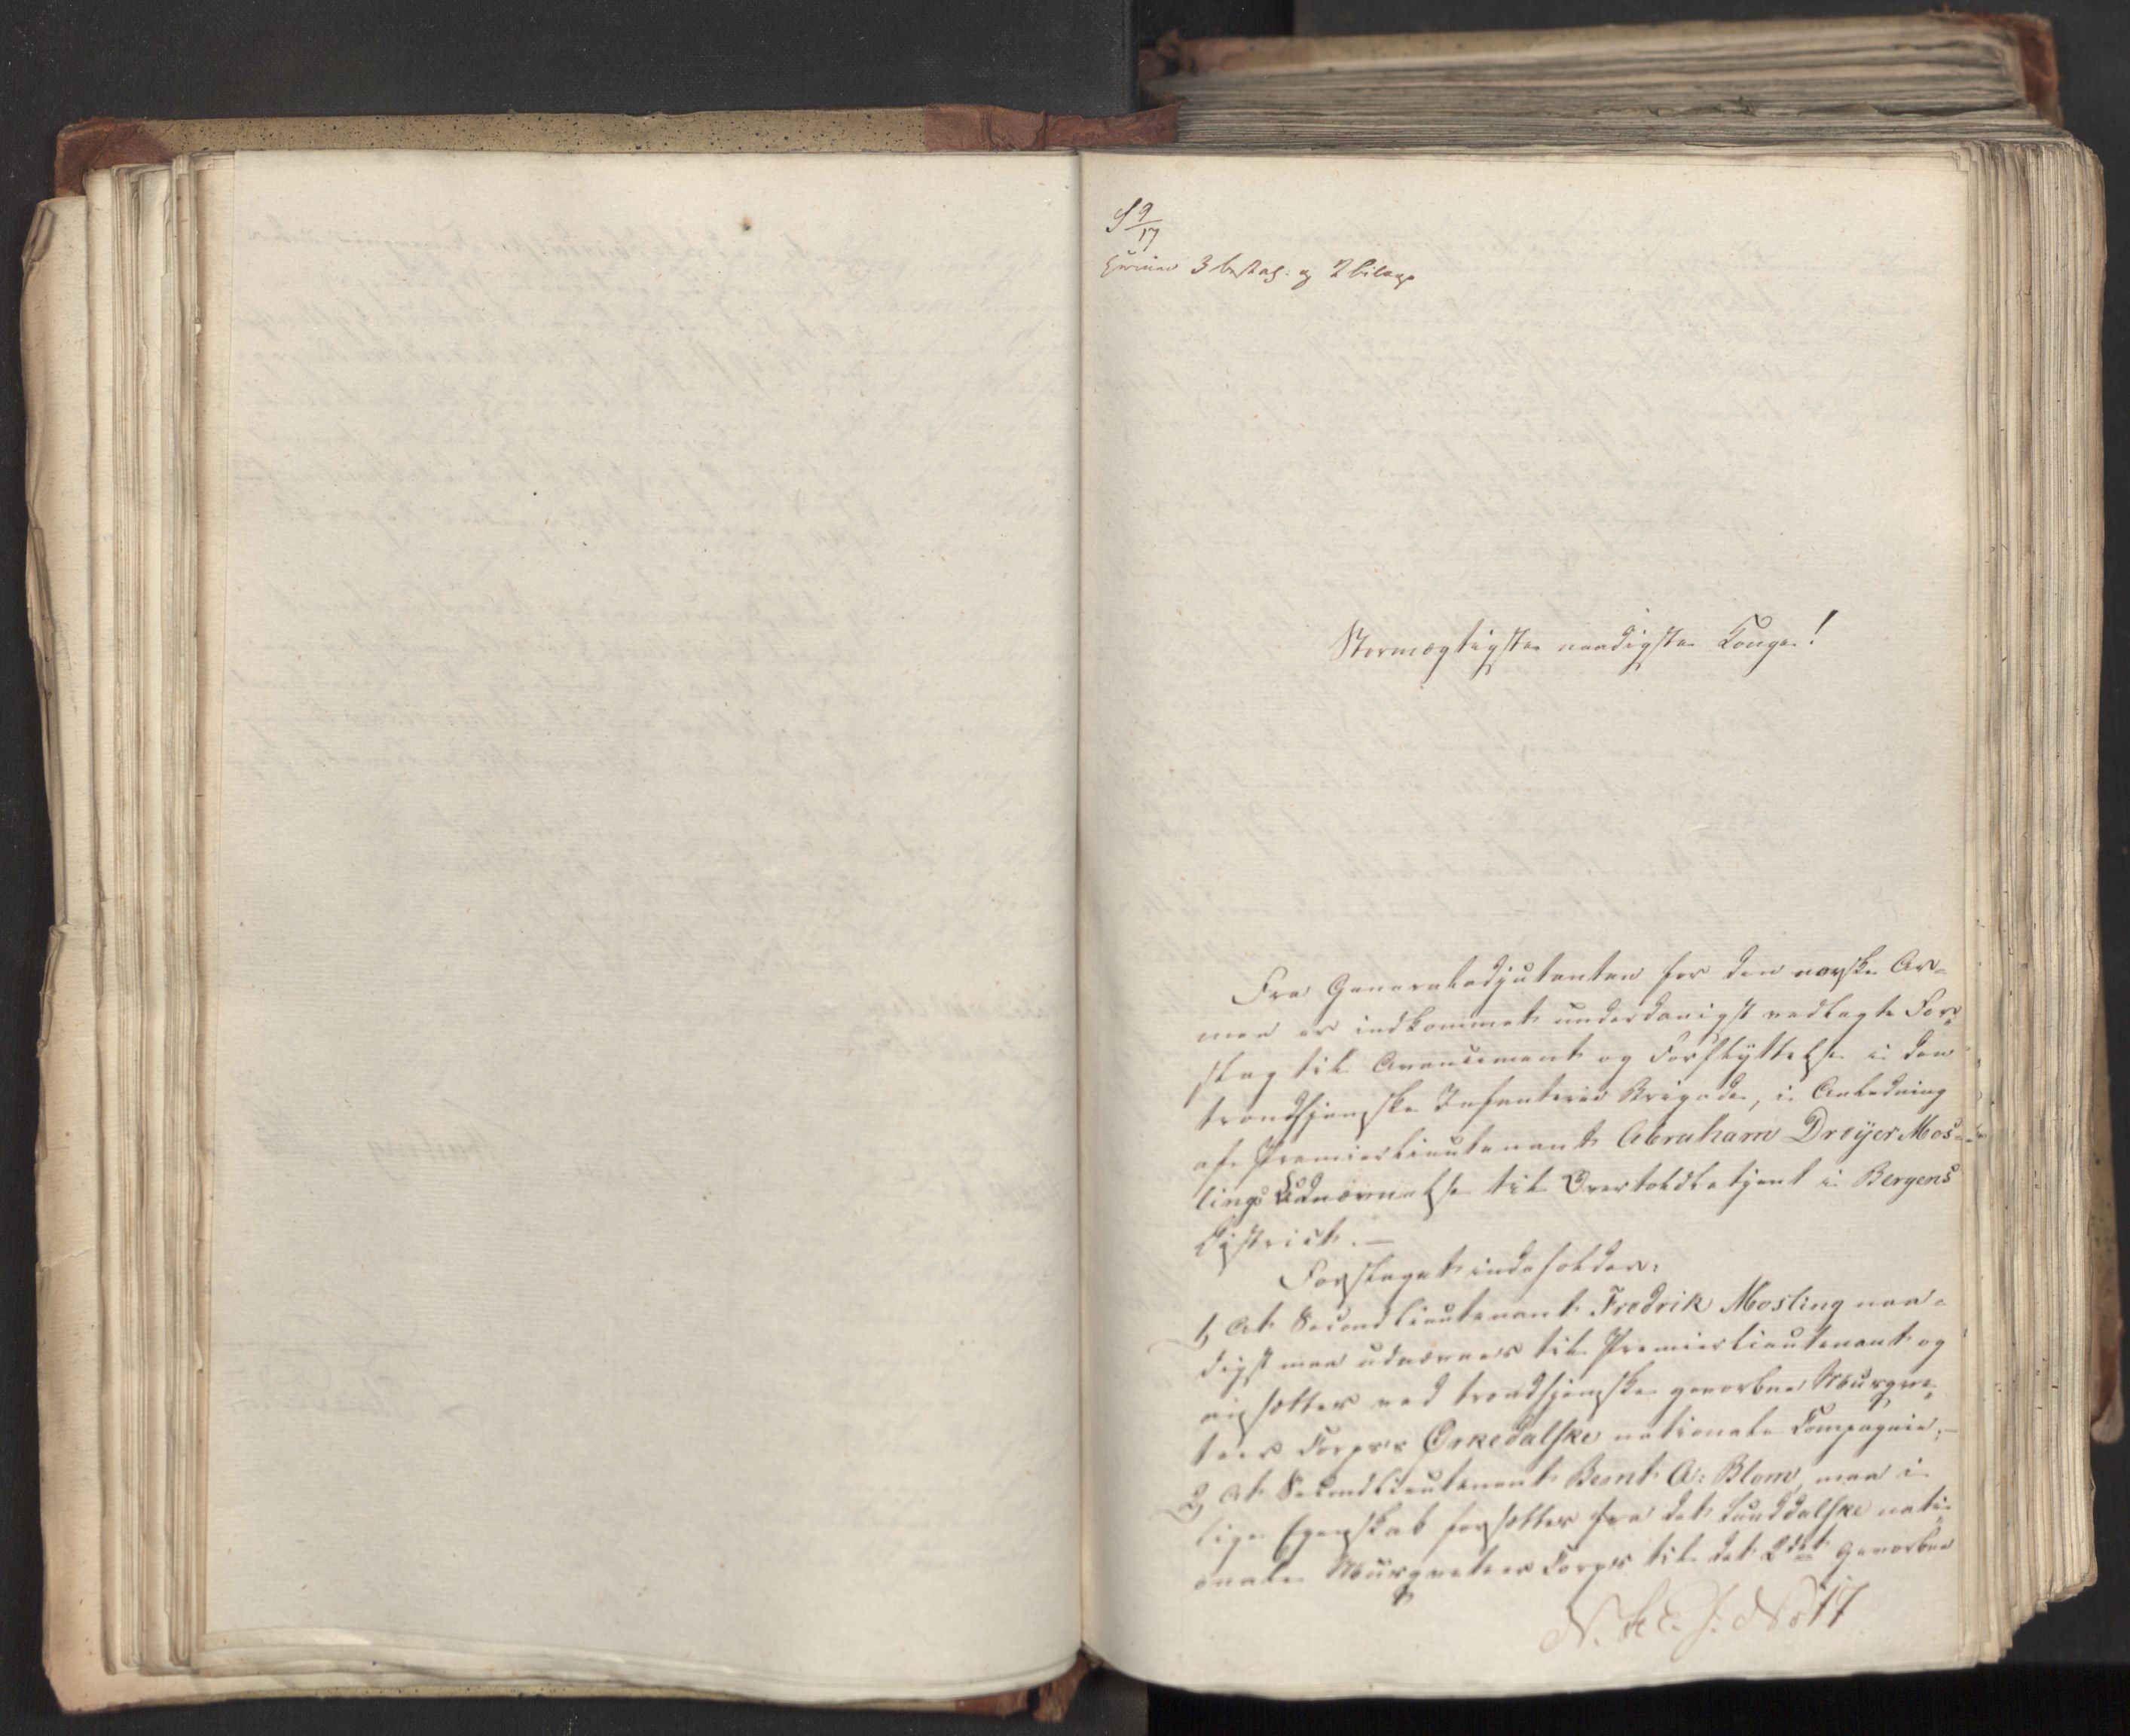 S 9/17
herunder 3 besk. og 2 bilage
Stormægtigste naadigste Konge!
Fra Generaladjutanten for den norske Ar-
mee er indkommet underdanigst vedlagte For-
slag til Avancement og Forflyttelse i den
trondhjemske Infanterie Brigade, i Anledning
af Premierlieutenant Abraham Dreijer Mos-
lings Udnævnelse til Overtoldbetjent i Bergens
District.—
Forslaget indeholder:
1, At Secondlieutenant Fredrik Mosling naa-
digst maa udnævnes til Premierlieutenant og
ansættes ved trondhjemske gevorbne Musqve-
teer Corps's Ørkedalske nationale Compagnie;—
2, At Secondlieutenant Bernt A: Blom, maa i
lige Egenskab forsættes fra det Sunddalske nati-
onale Musqveteer Corps til det 2det gevorbne
N. St. C. J. No 17